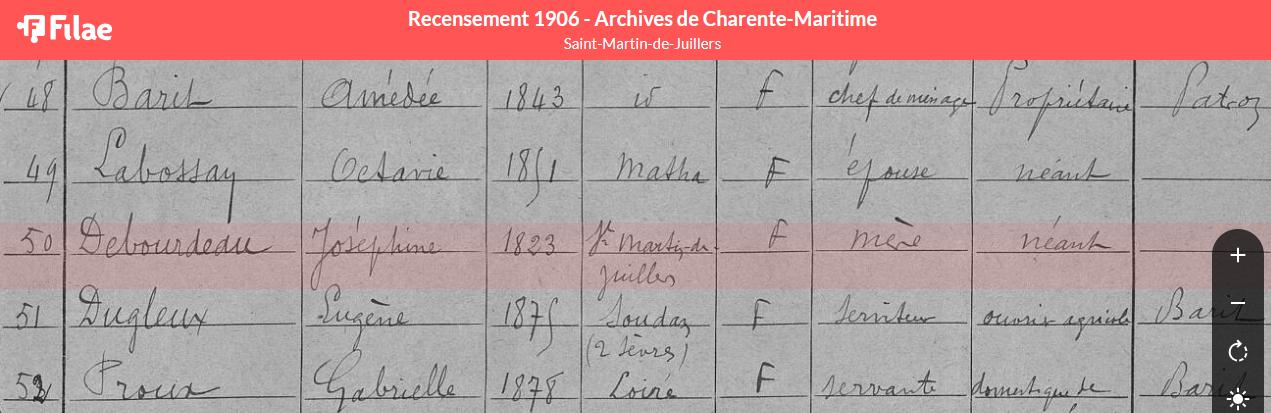 Filae
Recensement 1906 - Archives de Charente-Maritime
Saint-Martin-de-Juillers
48 Barit Amédée 1843 id F chef de ménage Propriétaire Patron
49 Labossay Octavie 1851 Matha F épouse néant
50 Debourdeau Joséphine 1823 St Martin-de- F mère néant
Juillers
51 Dugleux Eugène 1875 Soudan F serviteur ouvrier agricole Barit
(2 Sèvres)
52 Proux Gabrielle 1878 Loiré F servante domestique de Barit